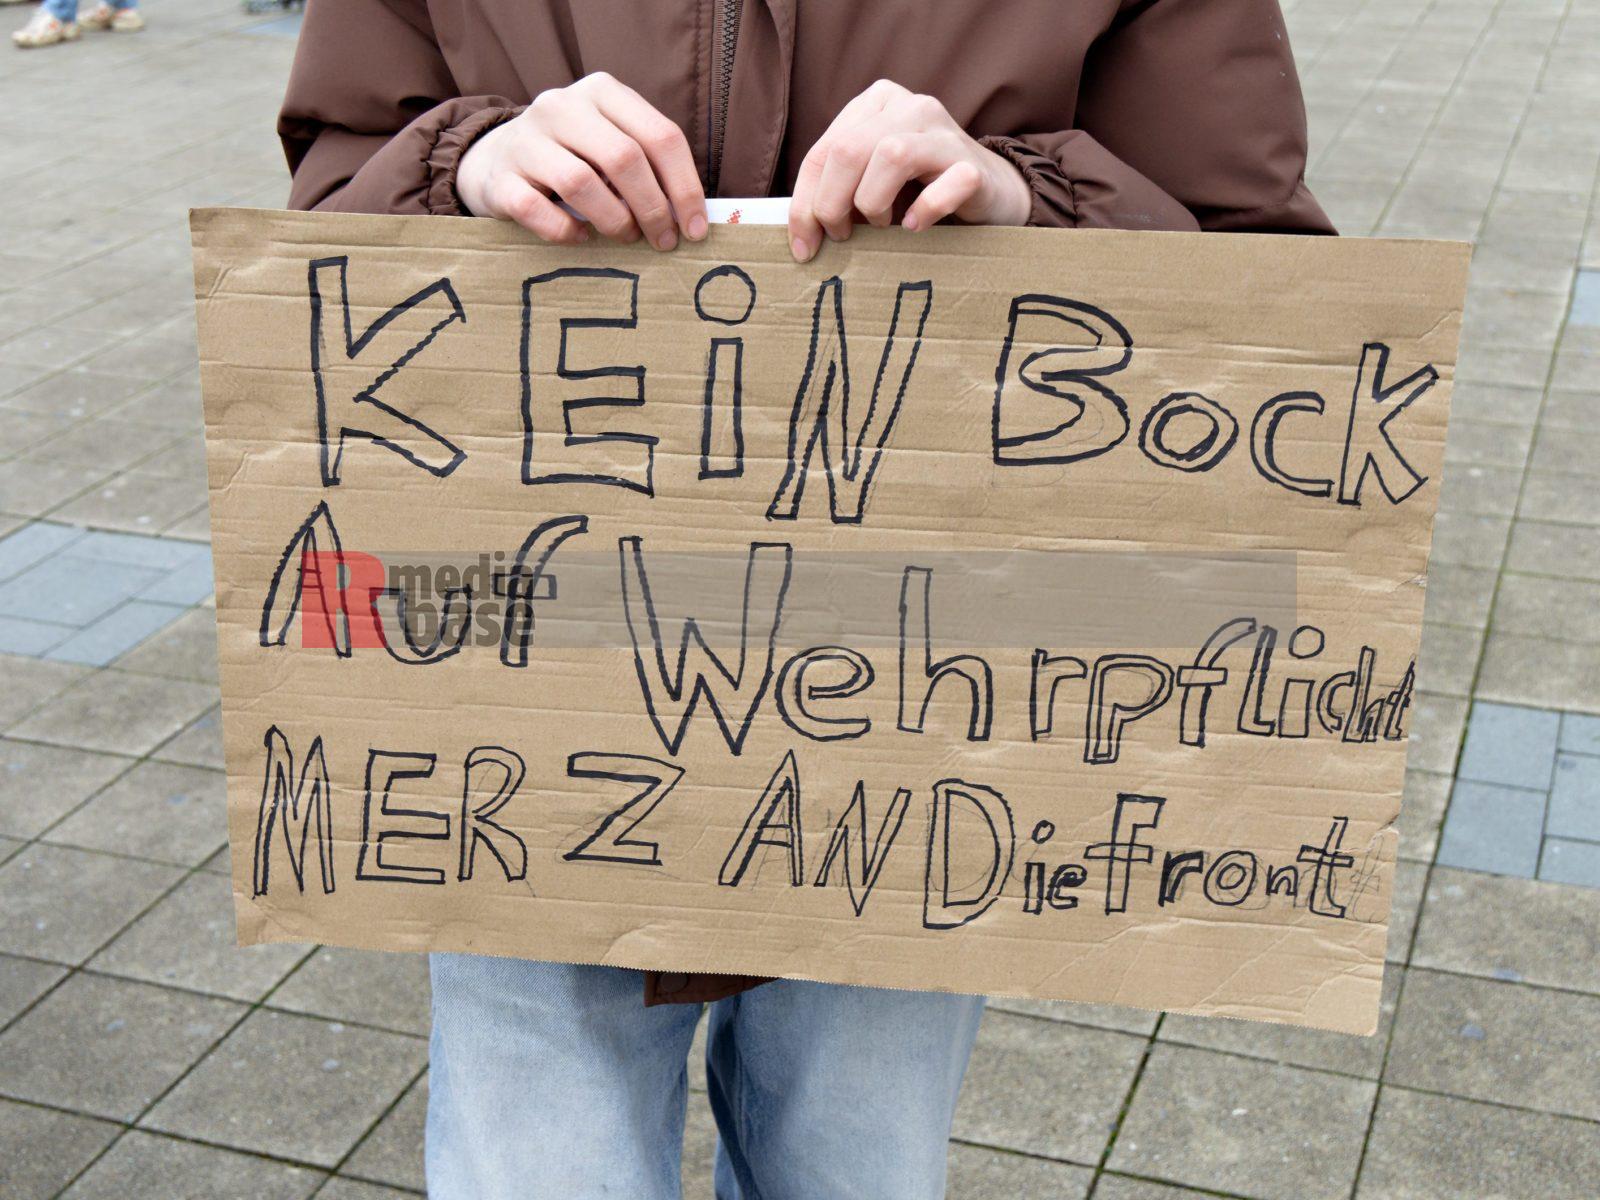 KEiN Bock
Auf Wehrpflicht
MERZ AN Die Front
R media base